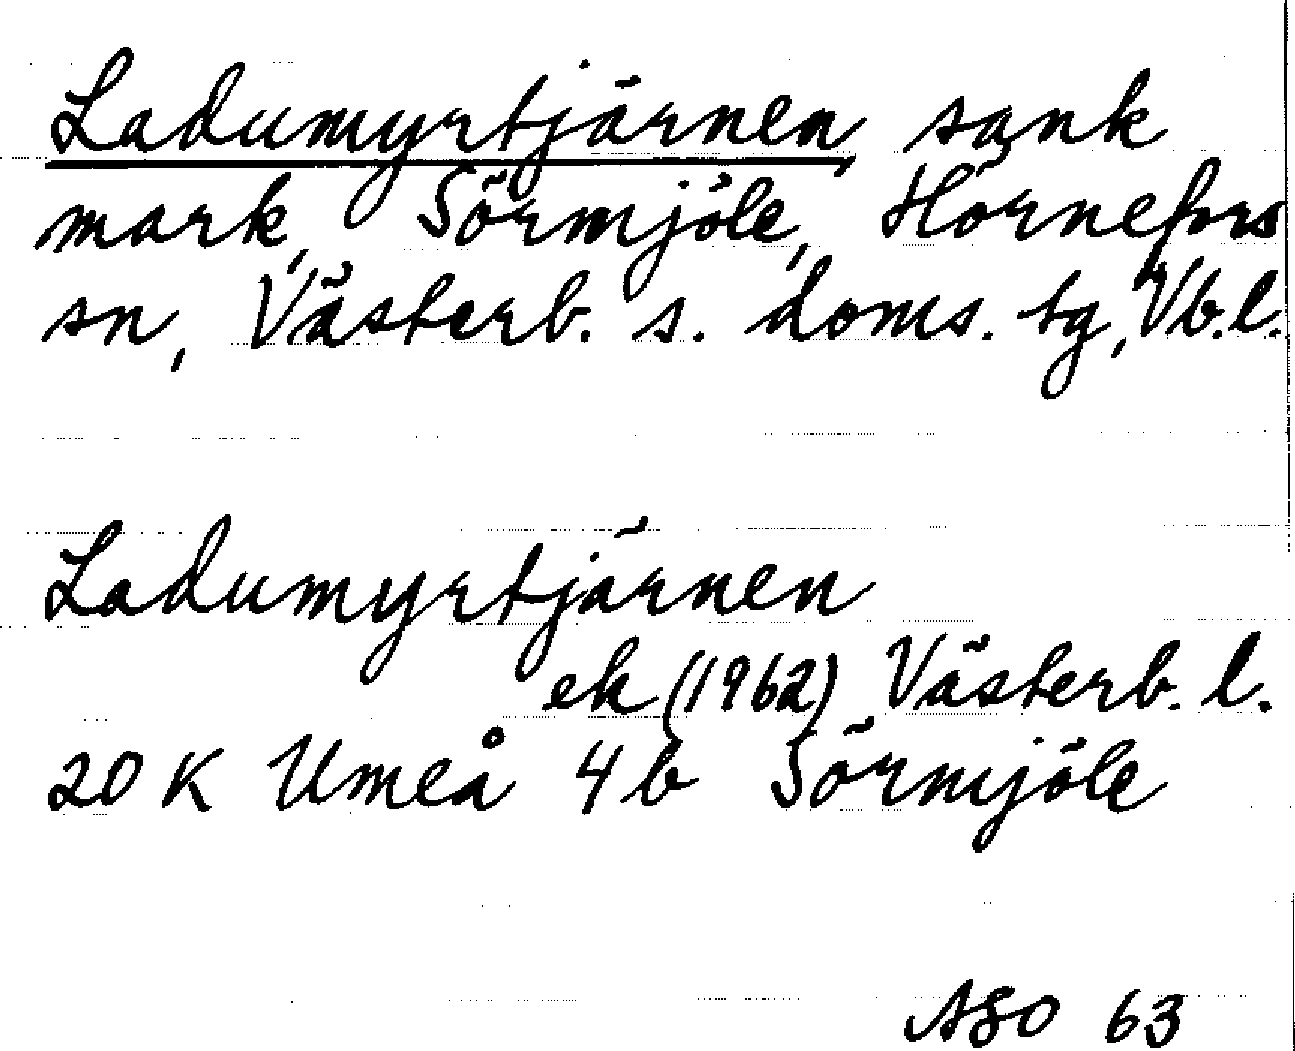 Ladumyrtjärnen, sank
mark, Sörmjöle, Hörnefors
sn, Västerb. s. doms. tg, Vb.l.
Ladumyrtjärnen
ek (1962) Västerb. l.
20 K Umeå 4 b Sörmjöle
ASO 63